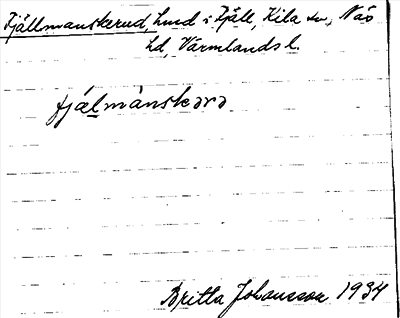 Fjällmanskerud, hmd i Fjäll, Kila sn, Näs
hd, Värmlands l.
fjälmánskərə
Britta Johansson 1934